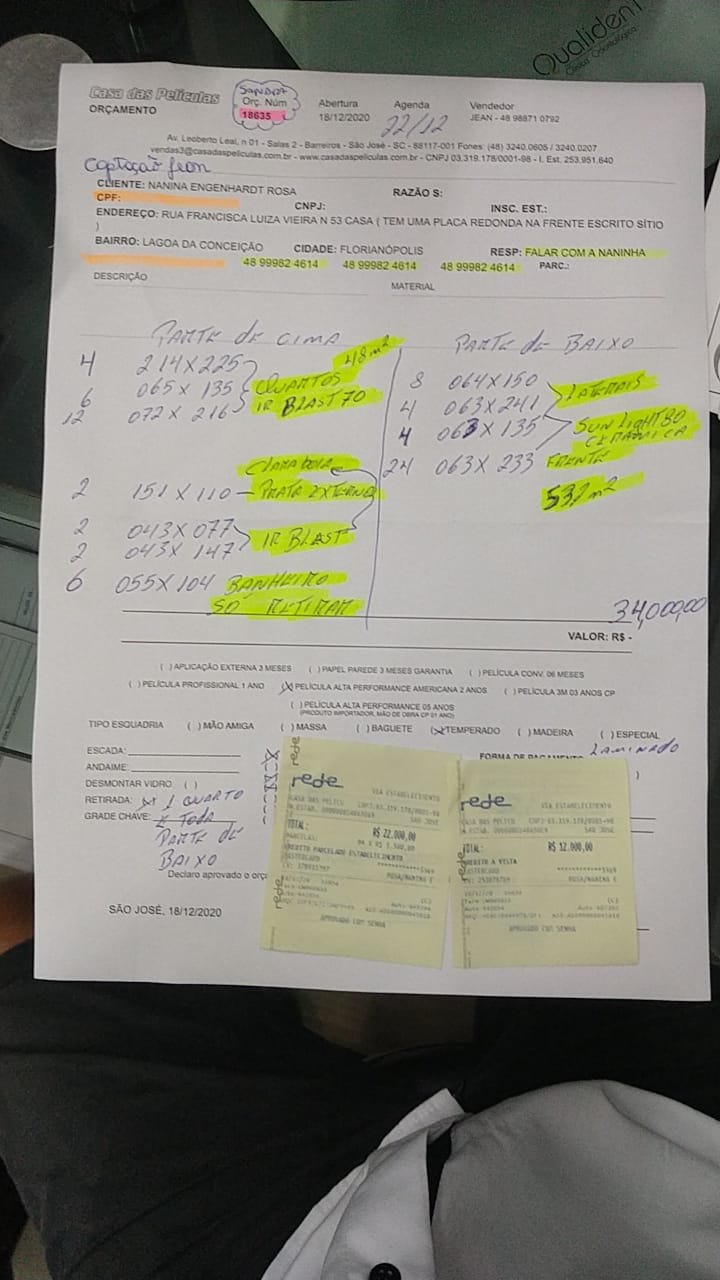 Qualident
Clínica Odontológica
Casa das Películas
ORÇAMENTO
SANDRA
Orç. Núm
18635
Abertura
18/12/2020
Agenda
22/12
Vendedor
JEAN - 48 98871 0792
Av. Leoberto Leal, n 01 - Salas 2 - Barreiros - São José - SC - 88117-001 Fones: (48) 3240.0605 / 3240.0207
vendas3@casadaspeliculas.com.br - www.casadaspeliculas.com.br - CNPJ 03.319.178/0001-98 - I. Est. 253.951.640
Captação Jean
CLIENTE: NANINA ENGENHARDT ROSA RAZÃO S:
CPF: CNPJ: INSC. EST.:
ENDEREÇO: RUA FRANCISCA LUIZA VIEIRA N 53 CASA ( TEM UMA PLACA REDONDA NA FRENTE ESCRITO SÍTIO
)
BAIRRO: LAGOA DA CONCEIÇÃO CIDADE: FLORIANÓPOLIS RESP: FALAR COM A NANINHA
48 99982 4614 48 99982 4614 48 99982 4614 PARC.:
DESCRIÇÃO MATERIAL
PARTE DE CIMA
48m²
4 214 X 225
6 065 X 135 QUARTOS
12 072 X 216 IR BLAST 70
CLARABOIA
2 151 X 110 - PRATA EXTERNO
2 043 X 077
2 043 X 147 IR BLAST
6 055 X 104 BANHEIRO
SÓ RETIRAR
PARTE DE BAIXO
8 064 X 150
4 063 X 241 LATERAIS
4 063 X 135 SUN LIGHT 80
CERAMICA
24 063 X 233 FRENTE
532m²
34,000,00
VALOR: R$ -
( ) APLICAÇÃO EXTERNA 3 MESES ( ) PAPEL PAREDE 3 MESES GARANTIA ( ) PELÍCULA CONV. 06 MESES
( ) PELÍCULA PROFISSIONAL 1 ANO (X) PELÍCULA ALTA PERFORMANCE AMERICANA 2 ANOS ( ) PELÍCULA 3M 03 ANOS CP
( ) PELÍCULA ALTA PERFORMANCE 05 ANOS
(PRODUTO IMPORTADOR, MÃO DE OBRA CP 01 ANO)
TIPO ESQUADRIA ( ) MÃO AMIGA ( ) MASSA ( ) BAGUETE (X) TEMPERADO ( ) MADEIRA ( ) ESPECIAL
LAMINADO
ESCADA:
FORMA DE PAGAMENTO
ANDAIME:
DESMONTAR VIDRO ( )
RETIRADA: X 1 QUARTO
GRADE CHAVE: X TODA
PARTE DE
BAIXO
Declaro aprovado o orç
SÃO JOSÉ, 18/12/2020
rede
VIA ESTABELECIMENTO
CNPJ:03.319.178/0001-98
SAO JOSE
TOTAL: R$ 22.000,00
PARCELAS:
CREDITO PARCELADO ESTABELECIMENTO
MASTERCARD
ROSA/NANINA E
APROVADO COM SENHA
rede
VIA ESTABELECIMENTO
CASA DAS PELICU CNPJ:03.319.178/0001-98
SAO JOSE
TOTAL: R$ 12.000,00
CREDITO A VISTA
MASTERCARD
ROSA/NANINA E
APROVADO COM SENHA